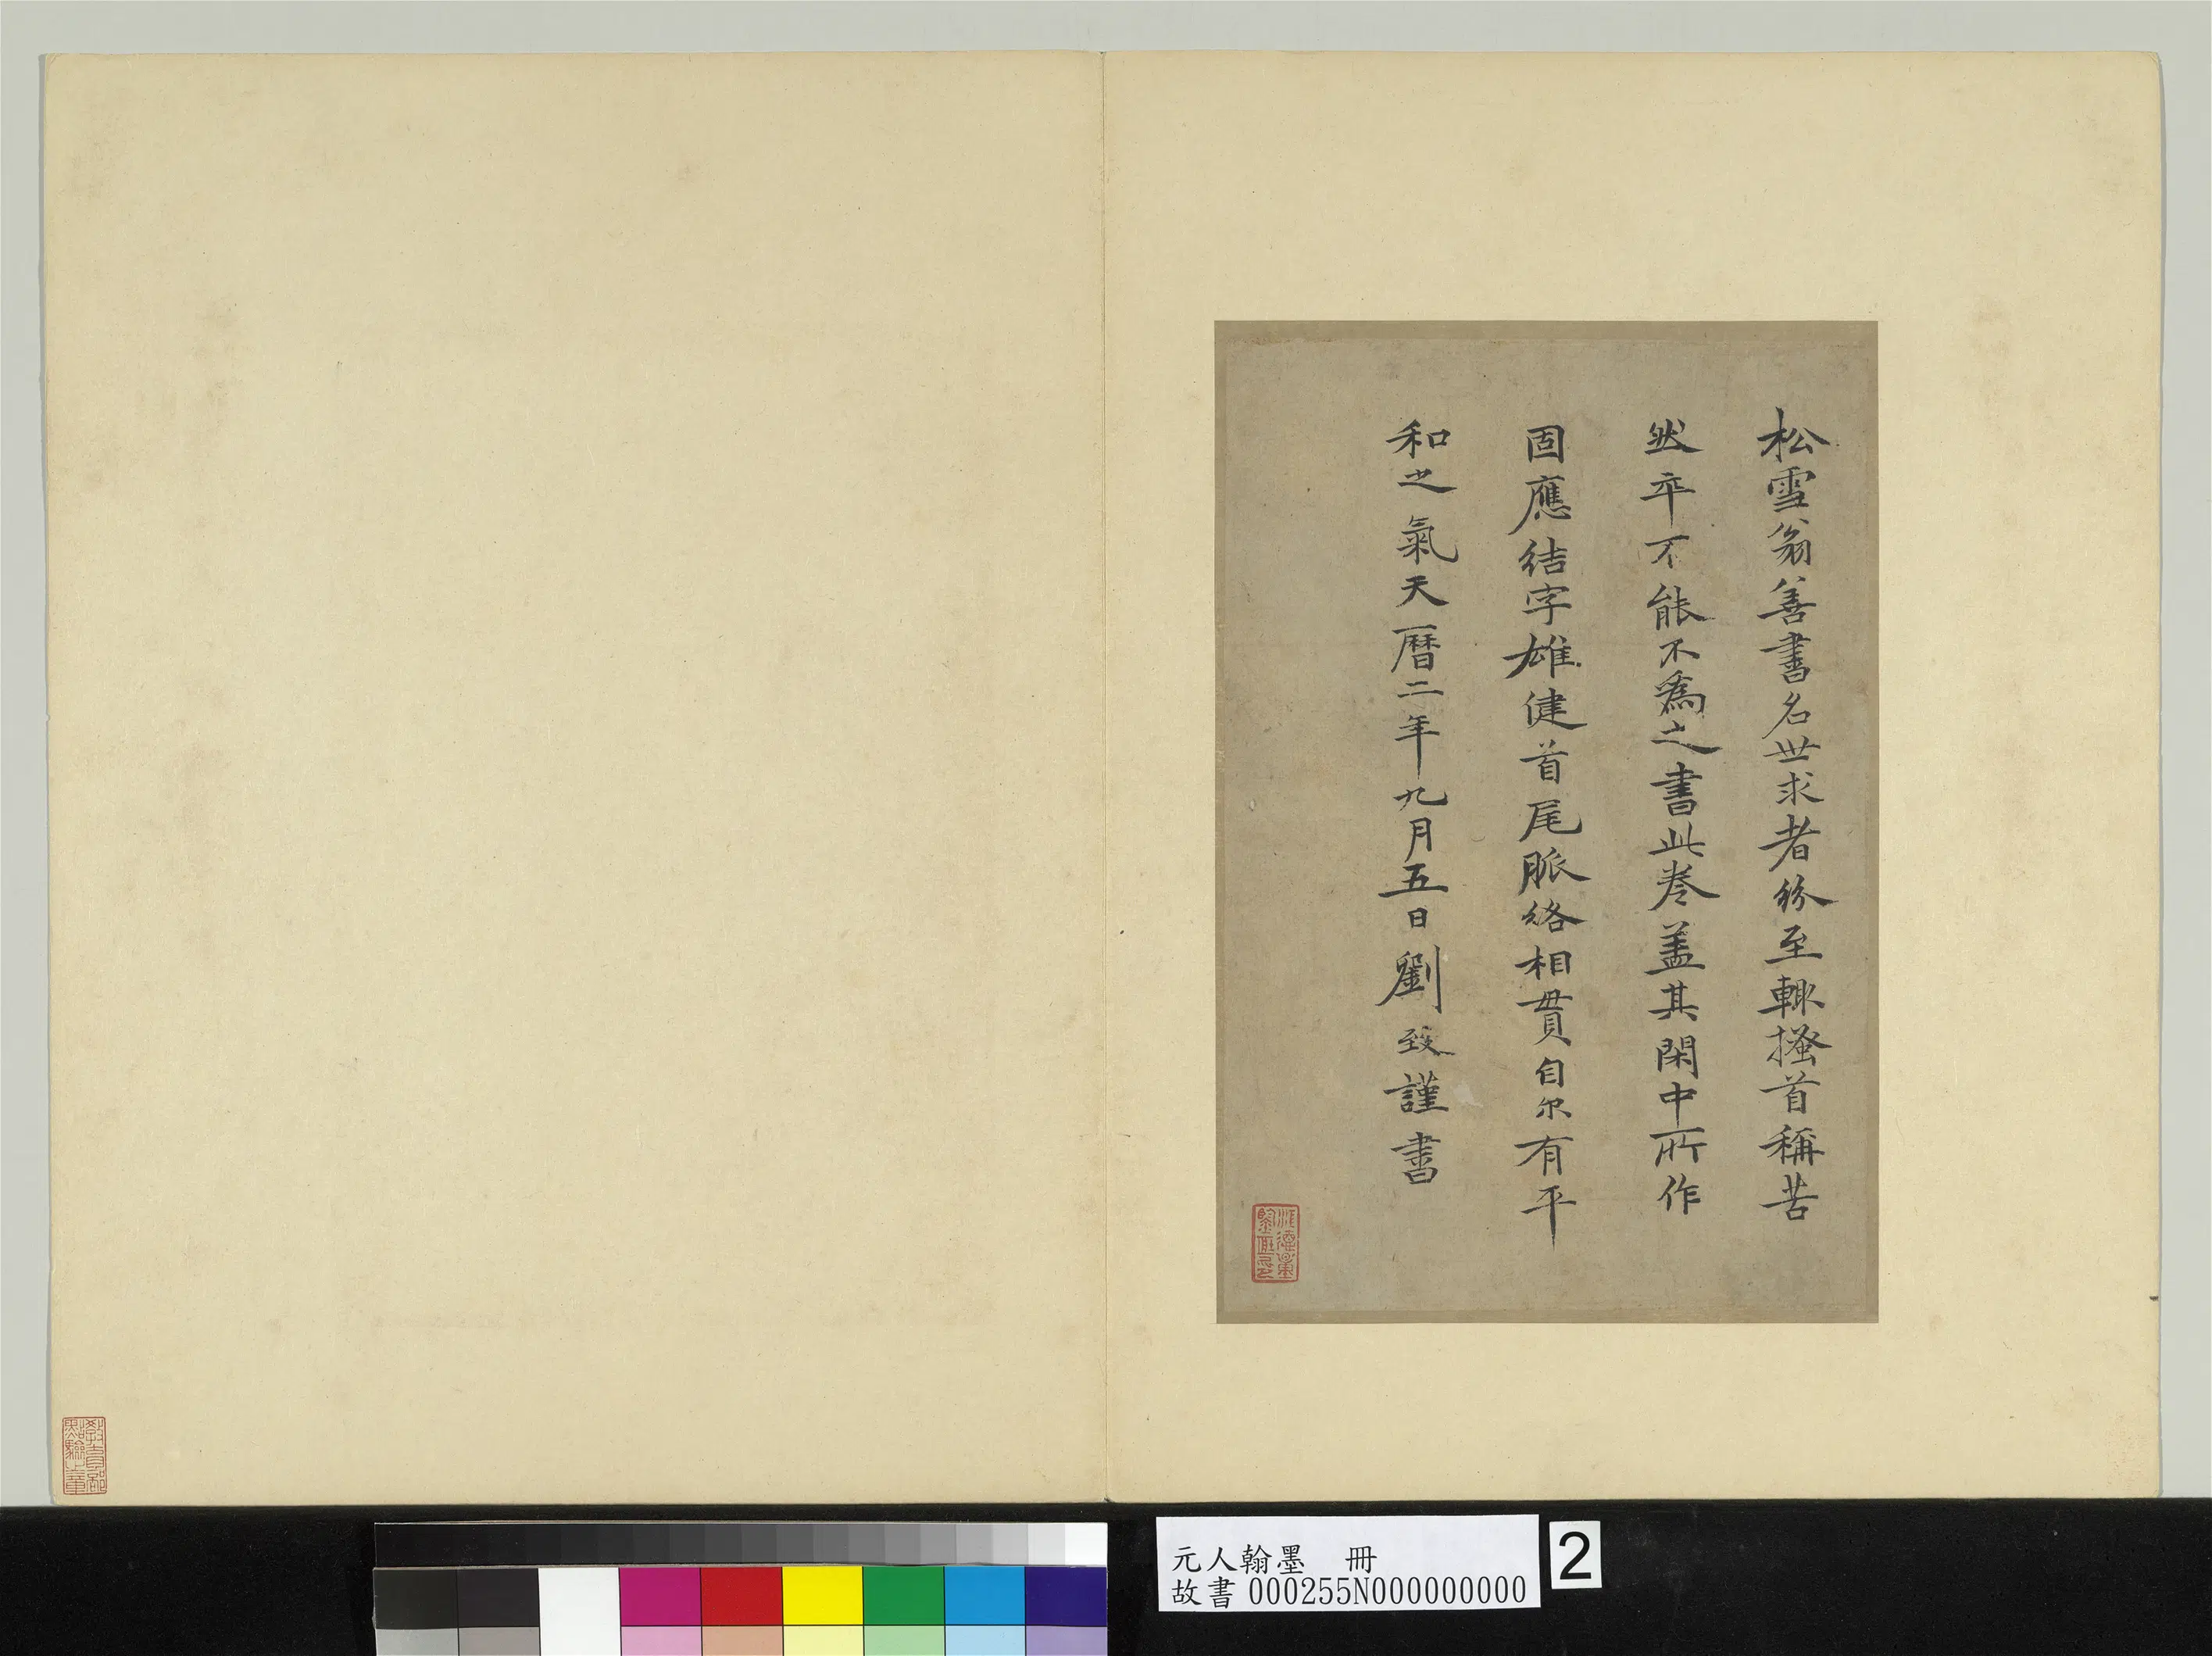 松雪翁善書名世求者紛至輙搔首稱苦
然卒不能不為之書此卷盖其閑中所作
固應結字雄健首尾脈絡相貫自尔有平
和之氣天曆二年九月五日劉致謹書
教育部
點驗之章
元人翰墨 冊
故書000255N000000000
2